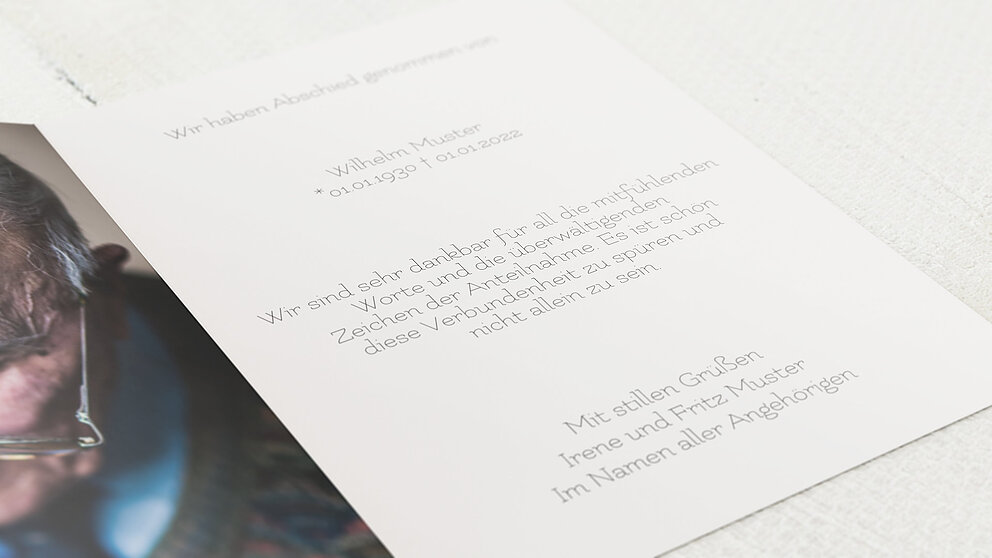 Wir haben Abschied genommen von
Wilhelm Muster
* 01.01.1930 † 01.01.2022
Wir sind sehr dankbar für all die mitfühlenden
Worte und die überwältigenden
Zeichen der Anteilnahme. Es ist schön
diese Verbundenheit zu spüren und
nicht allein zu sein.
Mit stillen Grüßen
Irene und Fritz Muster
Im Namen aller Angehörigen